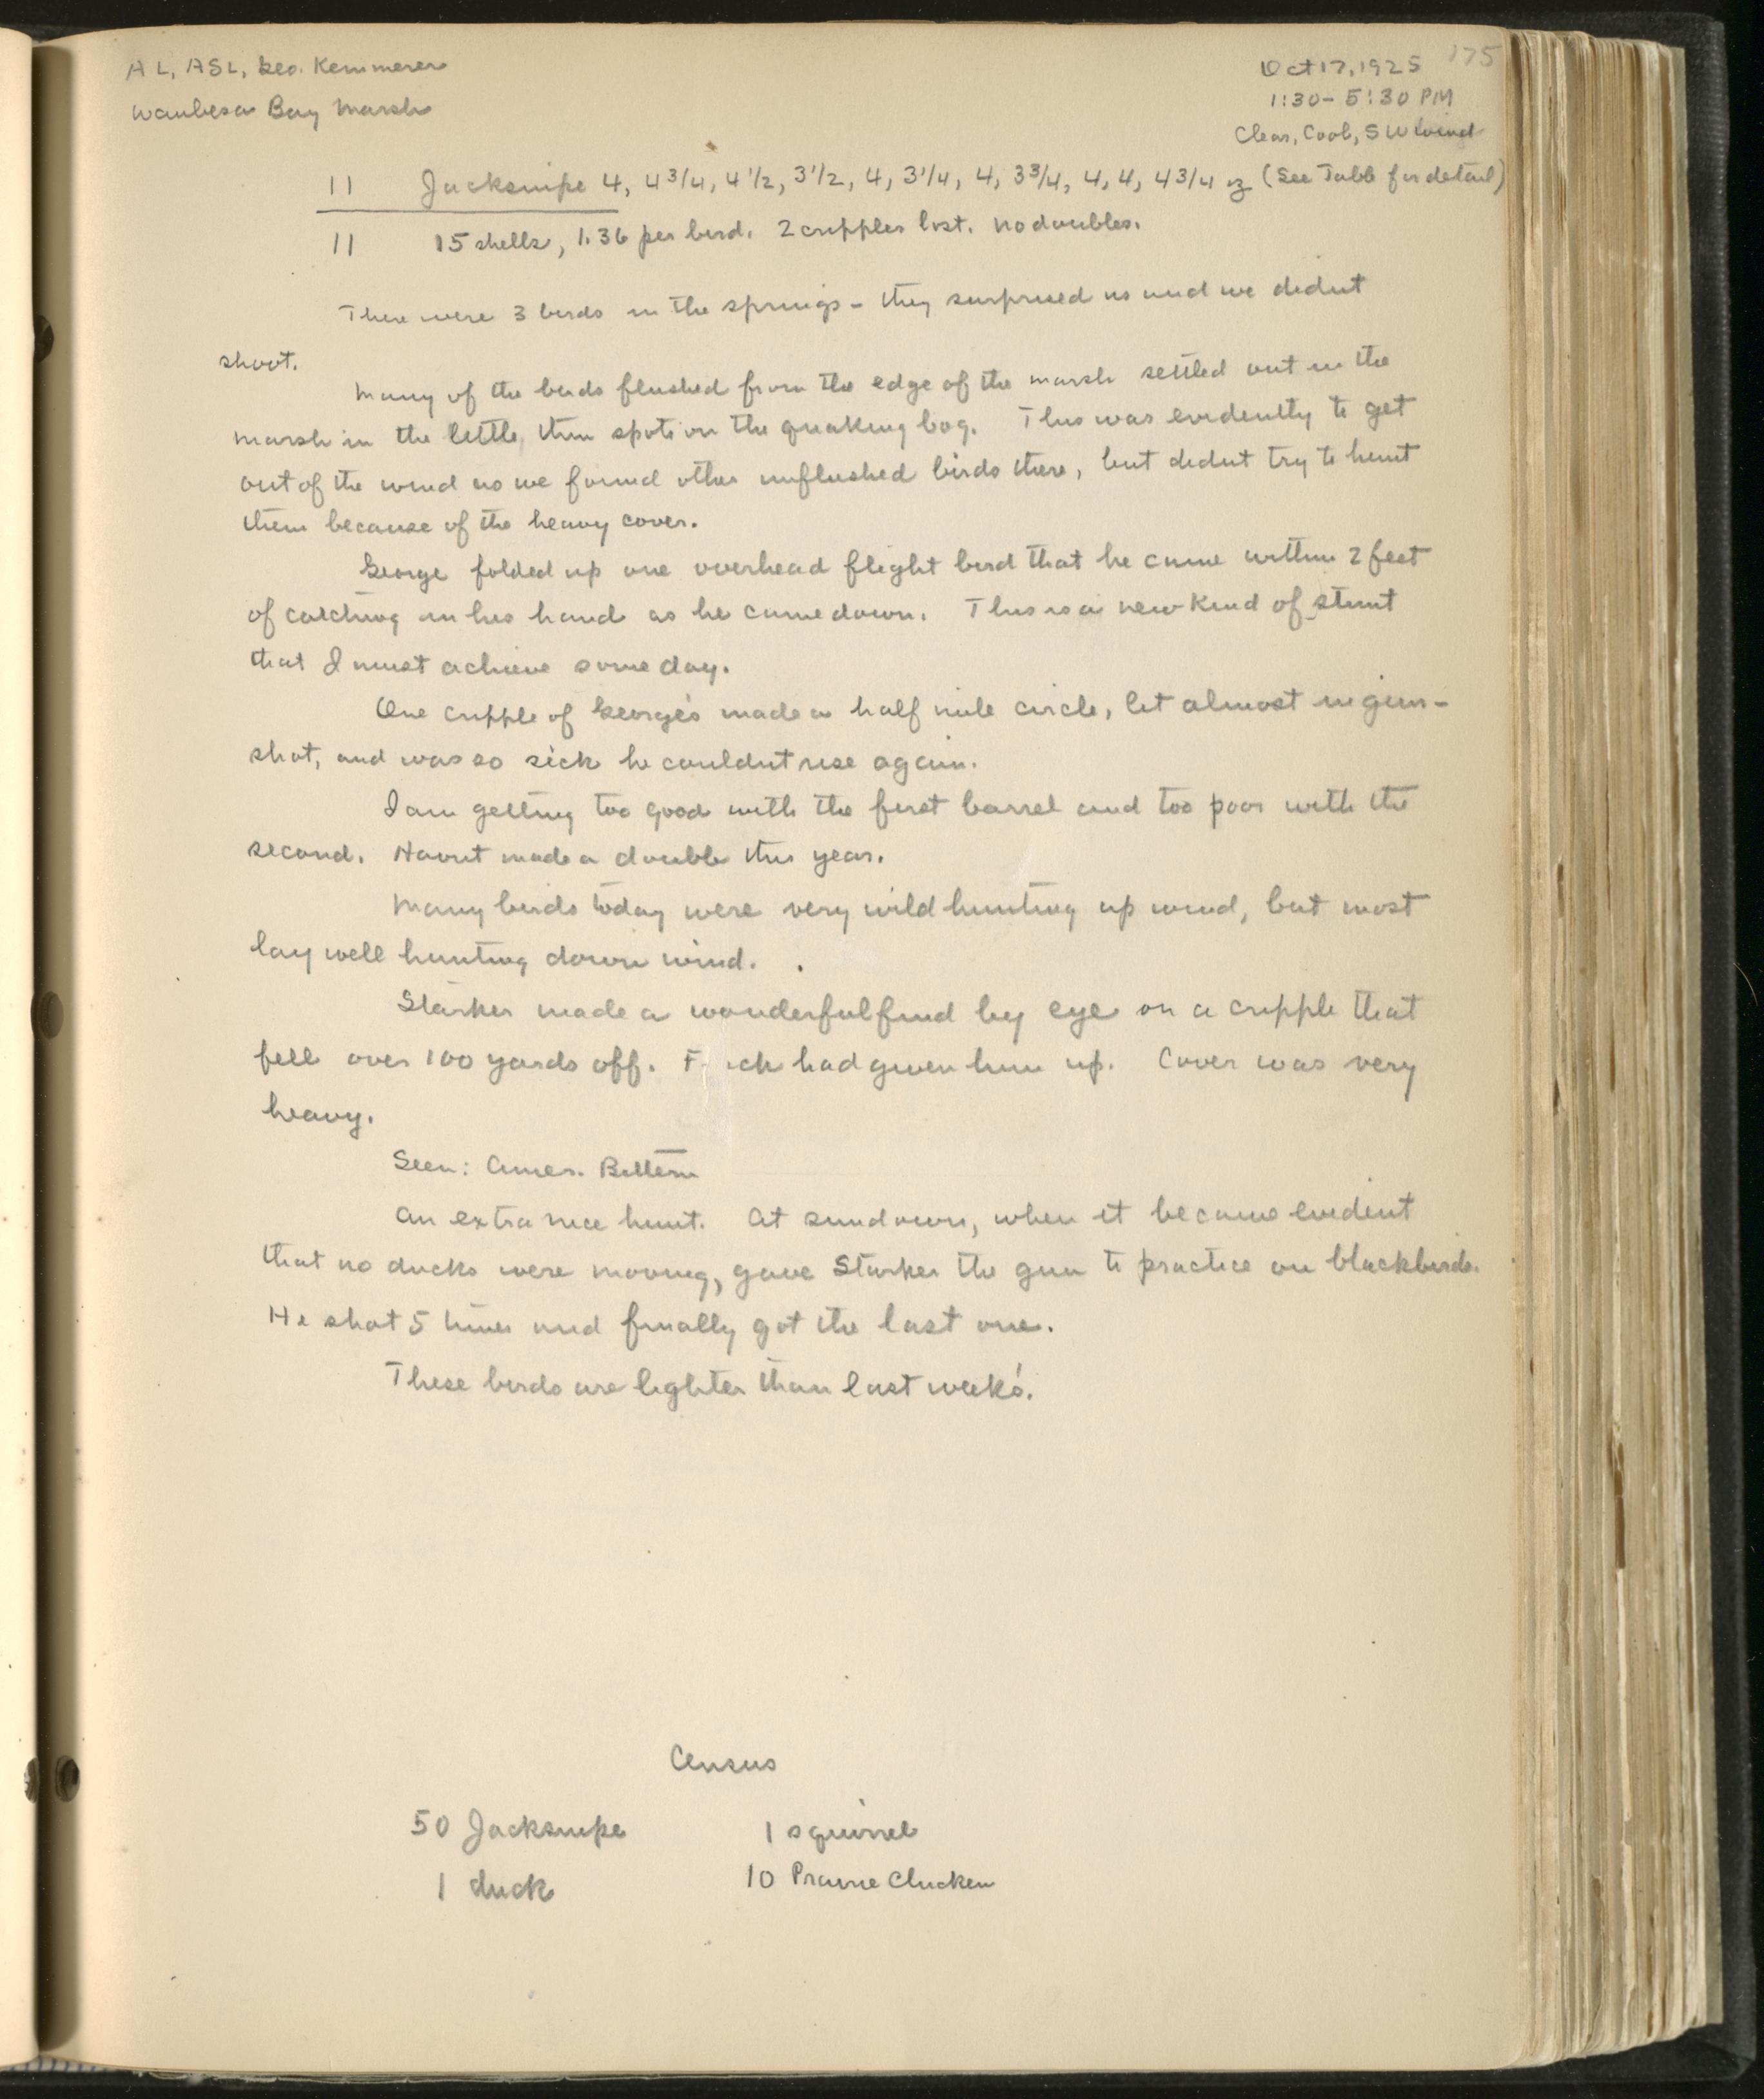 AL, ASL, Geo. Kemmerer
Waubesa Bay Marsh
175
Oct 17, 1925
1:30 - 5:30 PM
Clear, Cool, SW wind
11 Jacksnipe 4, 4 3/4, 4 1/2, 3 1/2, 4, 3 1/4, 4, 3 3/4, 4, 4, 4 3/4 oz (See Table for detail)
11 15 shells, 1.36 per bird. 2 cripples lost. No doubles.
There were 3 birds in the springs - they surprised us and we didnt
shoot.
Many of the birds flushed from the edge of the marsh settled out in the
marsh in the little thin spots on the quaking bog. This was evidently to get
out of the wind as we found other unflushed birds there, but didnt try to hunt
them because of the heavy cover.
George folded up one overhead flight bird that he came within 2 feet
of catching in his hand as he came down. This is a new kind of stunt
that I must achieve some day.
One cripple of George's made a half mile circle, lit almost in gun-
shot, and was so sick he couldnt rise again.
I am getting too good with the first barrel and too poor with the
second. Havnt made a double this year.
Many birds today were very wild hunting up wind, but most
lay well hunting down wind.
Starker made a wonderful find by eye on a cripple that
fell over 100 yards off. had given him up. Cover was very
heavy.
Seen: Amer. Bittern
An extra nice hunt. At sundown, when it became evident
that no ducks were moving, gave Starker the gun to practice on blackbirds.
He shot 5 times and finally got the last one.
These birds are lighter than last week's.
Census
50 Jacksnipe 1 squirrel
1 duck 10 Prairie Chicken